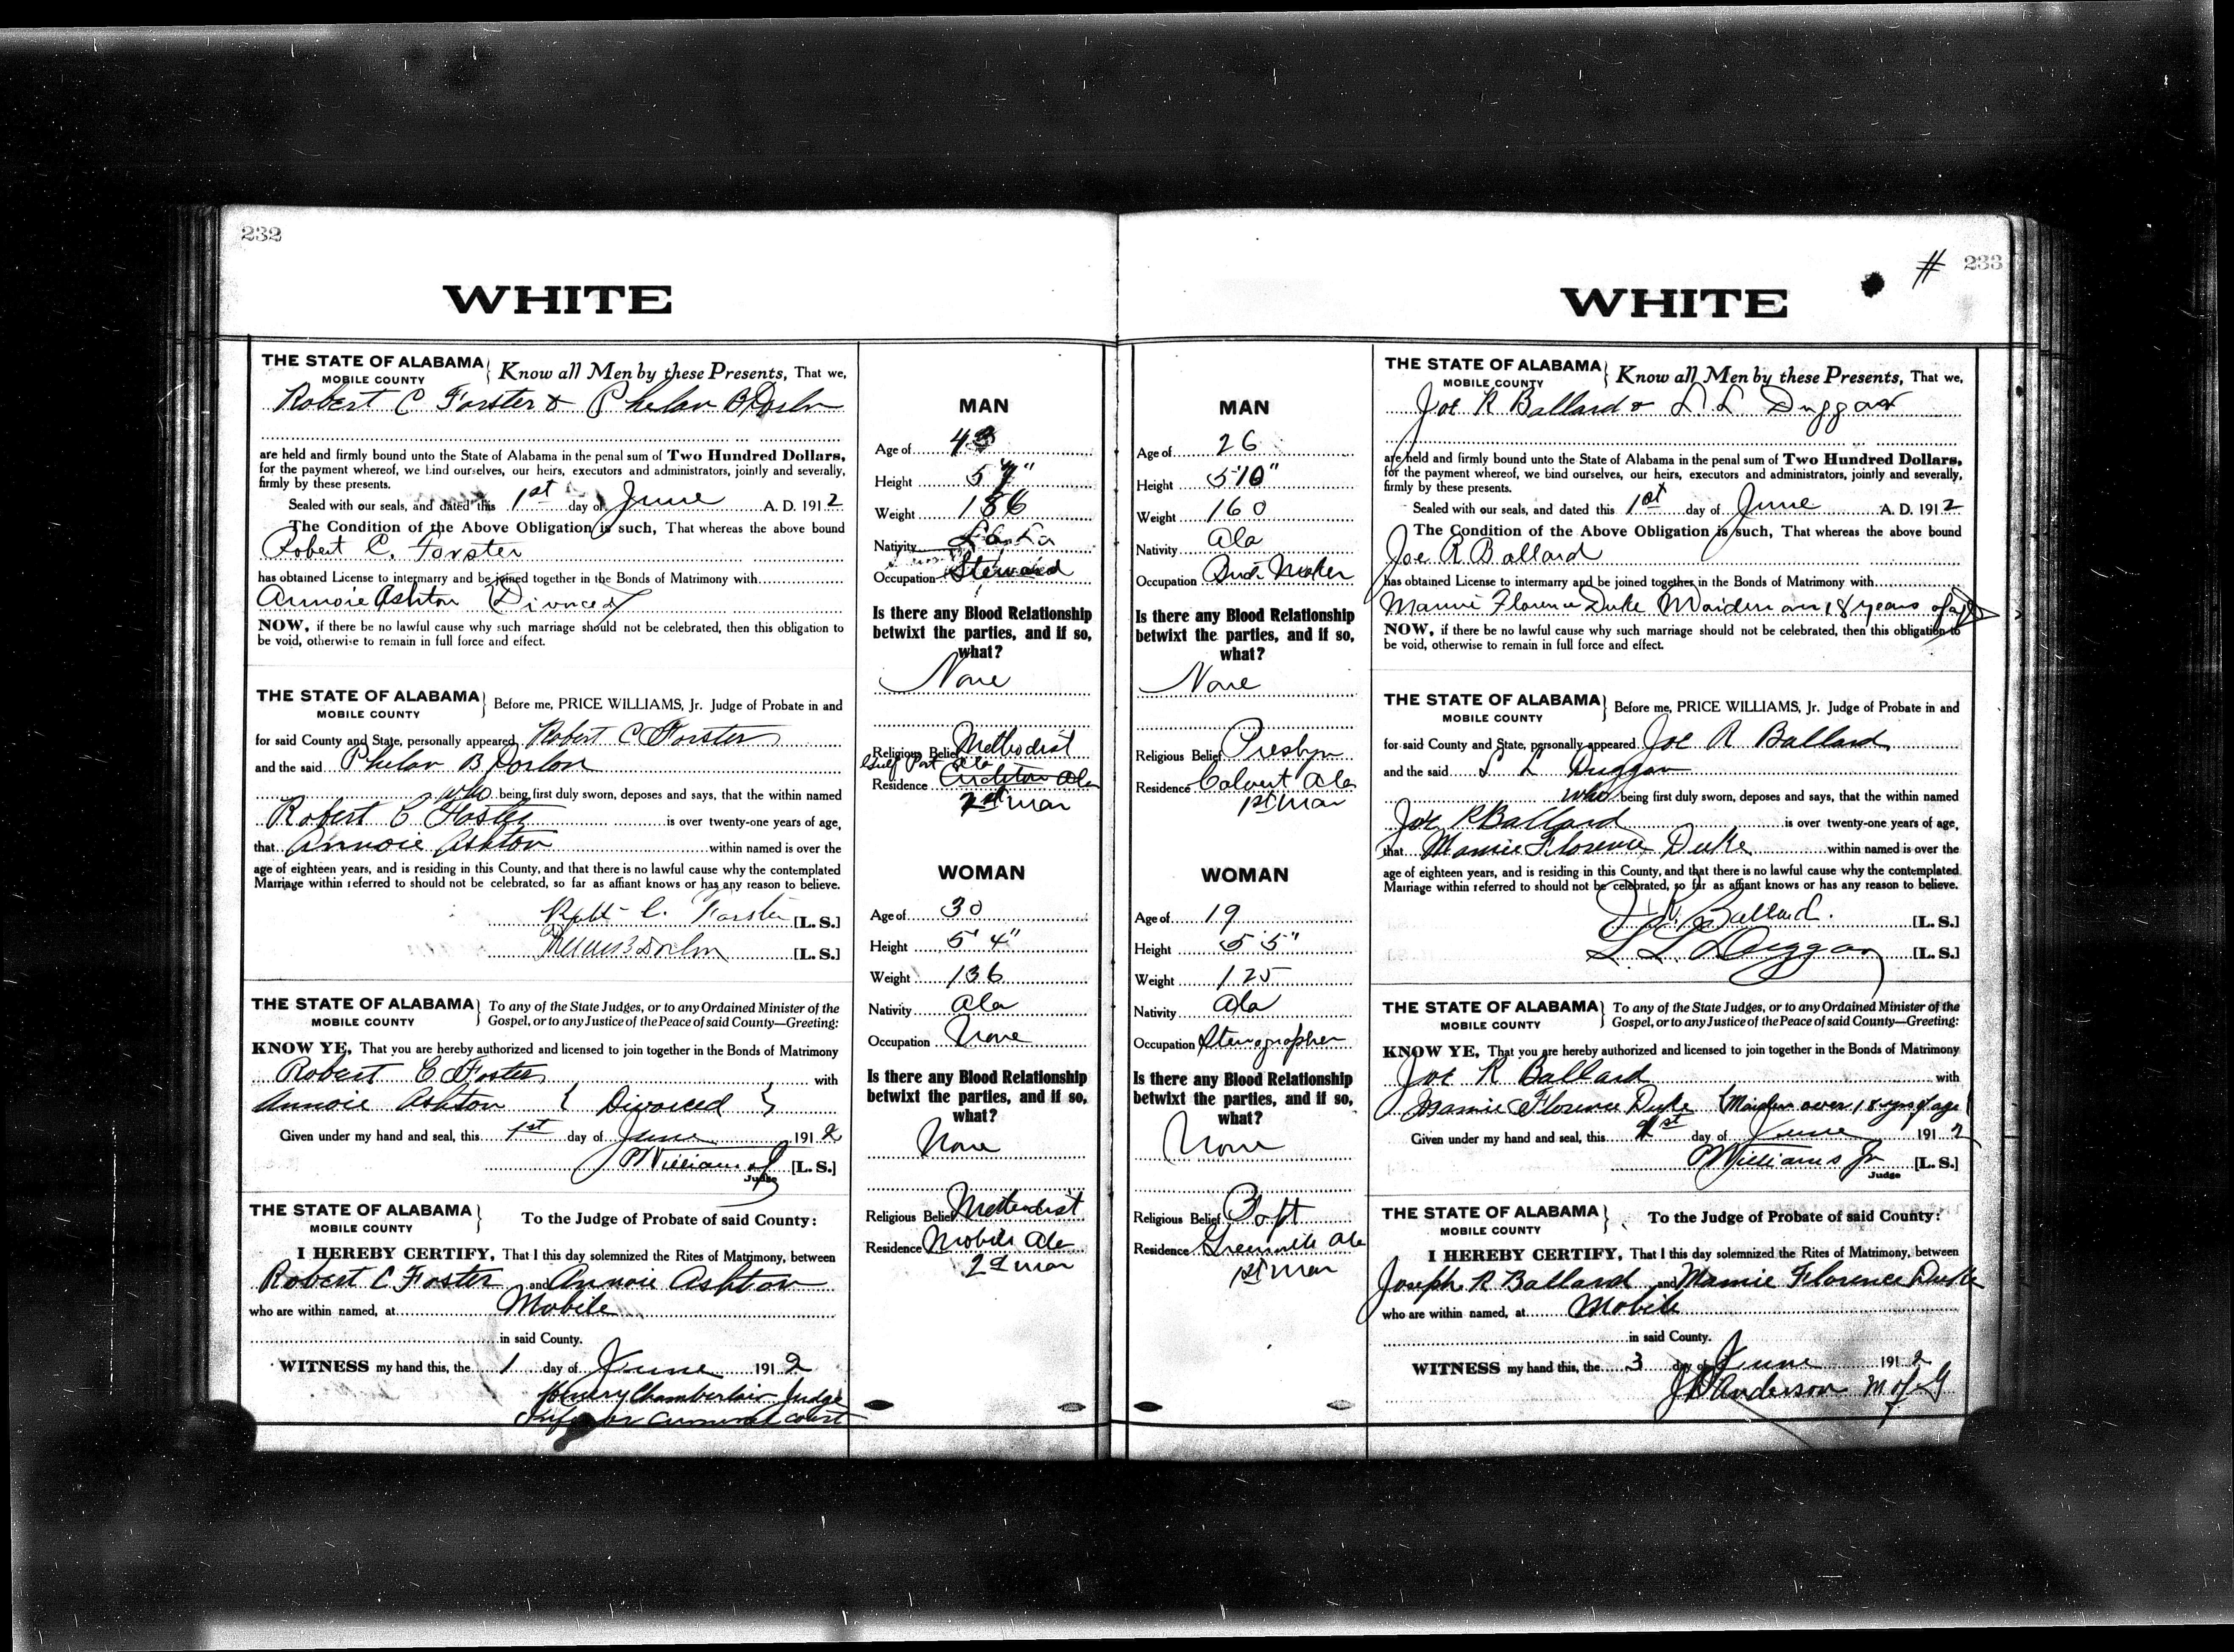 232
WHITE
THE STATE OF ALABAMA
MOBILE COUNTY
Know all Men by these Presents, That we,
Robert C Forster & Phelan B Dorlon
are held and firmly bound unto the State of Alabama in the penal sum of Two Hundred Dollars,
for the payment whereof, we bind ourselves, our heirs, executors and administrators, jointly and severally,
firmly by these presents.
Sealed with our seals, and dated this 1st day of June A. D. 1912
The Condition of the Above Obligation is such, That whereas the above bound
Robert C. Forster
has obtained License to intermarry and be joined together in the Bonds of Matrimony with
Annoie Ashton (Divorced)
NOW, if there be no lawful cause why such marriage should not be celebrated, then this obligation to
be void, otherwise to remain in full force and effect.
THE STATE OF ALABAMA
MOBILE COUNTY
Before me, PRICE WILLIAMS, Jr. Judge of Probate in and
for said County and State, personally appeared Robert C Forster
and the said Phelan B Dorlon
who being first duly sworn, deposes and says, that the within named
Robert C Foster is over twenty-one years of age,
that Annoie Ashton within named is over the
age of eighteen years, and is residing in this County, and that there is no lawful cause why the contemplated
Marriage within referred to should not be celebrated, so far as affiant knows or has any reason to believe.
Robt C. Forster [L. S.]
Phelan B Dorlon [L. S.]
THE STATE OF ALABAMA
MOBILE COUNTY
To any of the State Judges, or to any Ordained Minister of the
Gospel, or to any Justice of the Peace of said County—Greeting:
KNOW YE, That you are hereby authorized and licensed to join together in the Bonds of Matrimony
Robert C Foster with
Annoie Ashton { Divorced }
Given under my hand and seal, this 1st day of June 1912
P Williams Jr [L. S.]
Judge
THE STATE OF ALABAMA
MOBILE COUNTY
To the Judge of Probate of said County:
I HEREBY CERTIFY, That I this day solemnized the Rites of Matrimony, between
Robert C Foster and Annoie Ashton
who are within named, at Mobile
in said County.
WITNESS my hand this, the 1 day of June 1912
Henry Chamberlain Judge
Inferior Criminal Court
MAN
Age of 43
Height 5 7"
Weight 156
Nativity
Occupation Steward
Is there any Blood Relationship
betwixt the parties, and if so,
what?
None
Religious Belief Methodist
Gulf Port Ala
Residence Ala
2d Mar
WOMAN
Age of 30
Height 5' 4"
Weight 136
Nativity Ala
Occupation None
Is there any Blood Relationship
betwixt the parties, and if so,
what?
None
Religious Belief Methodist
Residence Mobile Ala
2d Mar
# 233
WHITE
MAN
Age of 26
Height 5 10"
Weight 160
Nativity Ala
Occupation Maker
Is there any Blood Relationship
betwixt the parties, and if so,
what?
None
Religious Belief Presbyn
Residence Calvert Ala
1st Mar
WOMAN
Age of 19
Height 5 5"
Weight 125
Nativity Ala
Occupation Stenographer
Is there any Blood Relationship
betwixt the parties, and if so,
what?
None
Religious Belief Bapt
Residence Greenville Ala
1st Mar
THE STATE OF ALABAMA
MOBILE COUNTY
Know all Men by these Presents, That we,
Joe R Ballard & L L Duggan
are held and firmly bound unto the State of Alabama in the penal sum of Two Hundred Dollars,
for the payment whereof, we bind ourselves, our heirs, executors and administrators, jointly and severally,
firmly by these presents.
Sealed with our seals, and dated this 1st day of June A. D. 1912
The Condition of the Above Obligation is such, That whereas the above bound
Joe R Ballard
has obtained License to intermarry and be joined together in the Bonds of Matrimony with
Mamie Florence Duke Maiden over 18 years of age
NOW, if there be no lawful cause why such marriage should not be celebrated, then this obligation to
be void, otherwise to remain in full force and effect.
THE STATE OF ALABAMA
MOBILE COUNTY
Before me, PRICE WILLIAMS, Jr. Judge of Probate in and
for said County and State, personally appeared Joe R Ballard
and the said L L Duggan
who being first duly sworn, deposes and says, that the within named
Joe R Ballard is over twenty-one years of age,
that Mamie Florence Duke within named is over the
age of eighteen years, and is residing in this County, and that there is no lawful cause why the contemplated
Marriage within referred to should not be celebrated, so far as affiant knows or has any reason to believe.
J. R. Ballard. [L. S.]
L. L. Duggan [L. S.]
THE STATE OF ALABAMA
MOBILE COUNTY
To any of the State Judges, or to any Ordained Minister of the
Gospel, or to any Justice of the Peace of said County—Greeting:
KNOW YE, That you are hereby authorized and licensed to join together in the Bonds of Matrimony
Joe R Ballard with
Mamie Florence Duke (Maiden over 18 yrs of age)
Given under my hand and seal, this 1st day of June 1912
P Williams Jr [L. S.]
Judge
THE STATE OF ALABAMA
MOBILE COUNTY
To the Judge of Probate of said County:
I HEREBY CERTIFY, That I this day solemnized the Rites of Matrimony, between
Joseph R Ballard and Mamie Florence Duke
who are within named, at Mobile
in said County.
WITNESS my hand this, the 3 day of June 1912
Anderson M of G